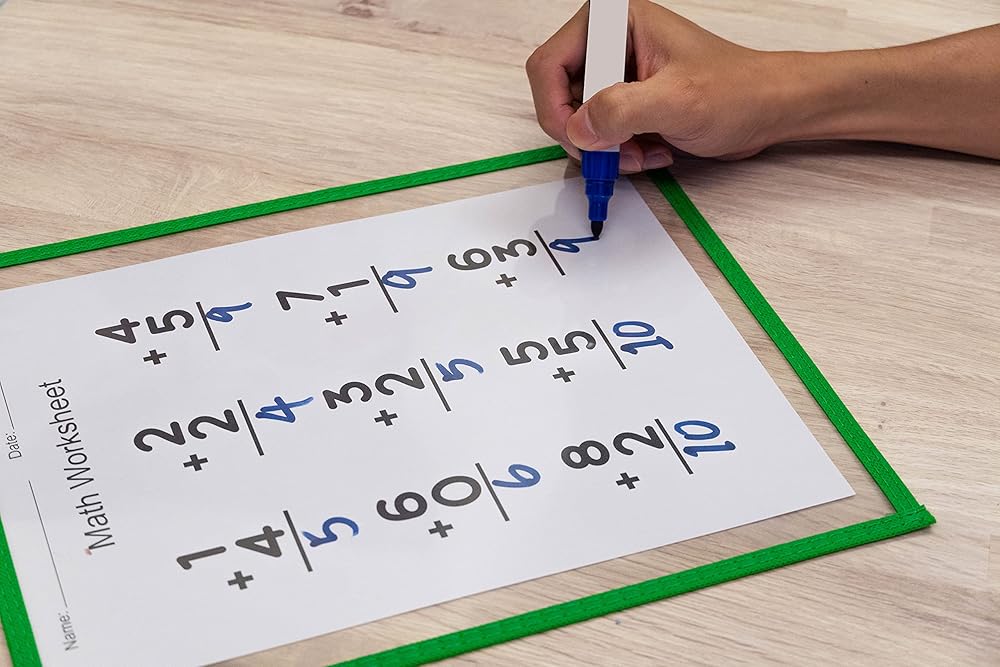 Name: Date:
Math Worksheet
1 2 4
+4 +2 +5
5 4 9
6 3 7
+0 +2 +1
6 5 9
8 5 6
+2 +5 +3
10 10 9